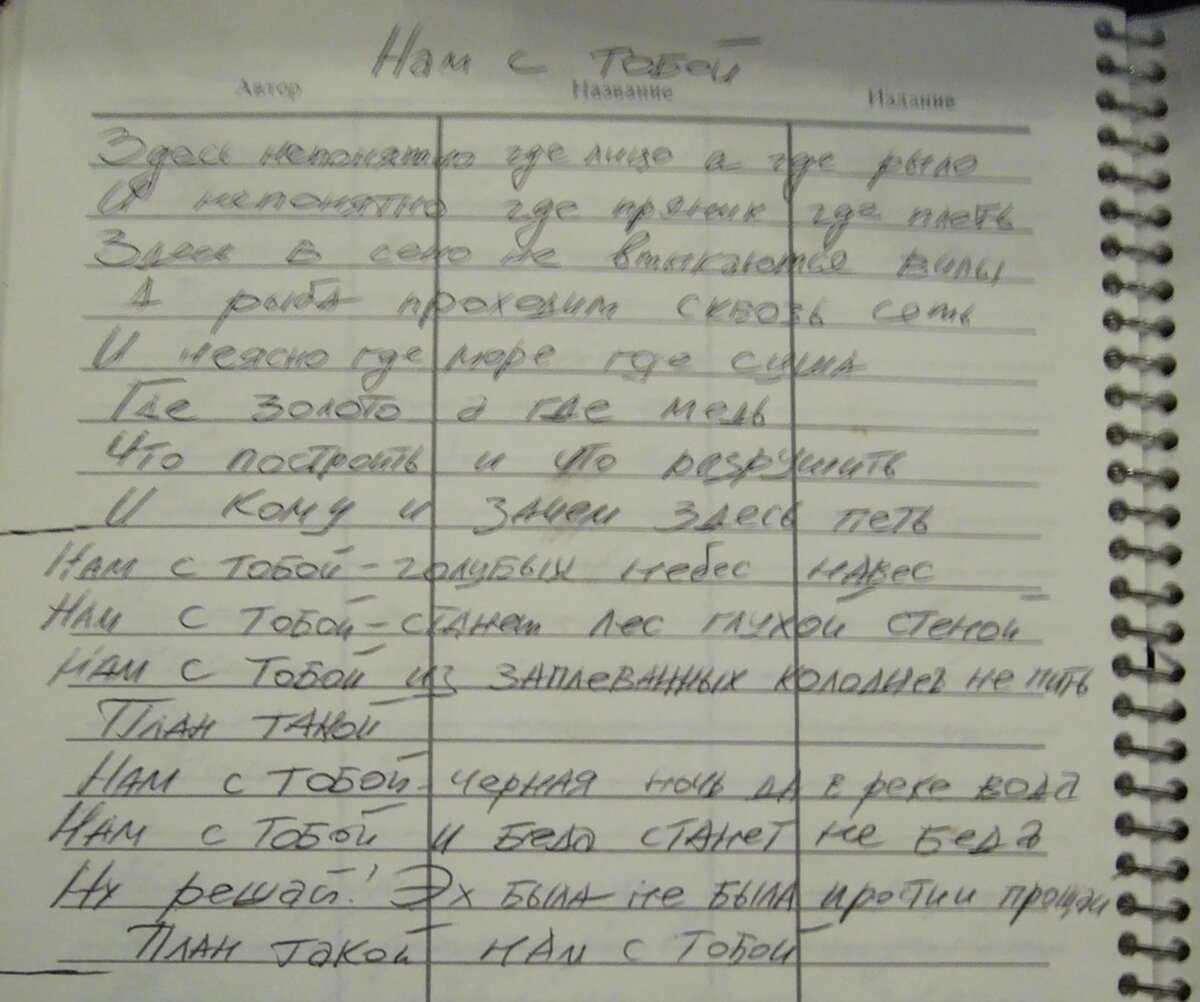 Нам с тобой
Автор Название Издание
Здесь непонятно где лицо а где рыло
И непонятно где пряник где плеть
Здесь в сено не втыкаются вилы
А рыба проходит сквозь сеть
И неясно где море где суша
Где золото а где медь
Что построить и что разрушить
И кому и зачем здесь петь
Нам с тобой - голубых небес навес
Нам с тобой - станет лес глухой стеной
Нам с тобой из заплеванных колодцев не пить
План такой
Нам с тобой - черная ночь да в реке вода
Нам с тобой и беда станет не беда
Ну решай! Эх была не была прости прощай
План такой нам с тобой